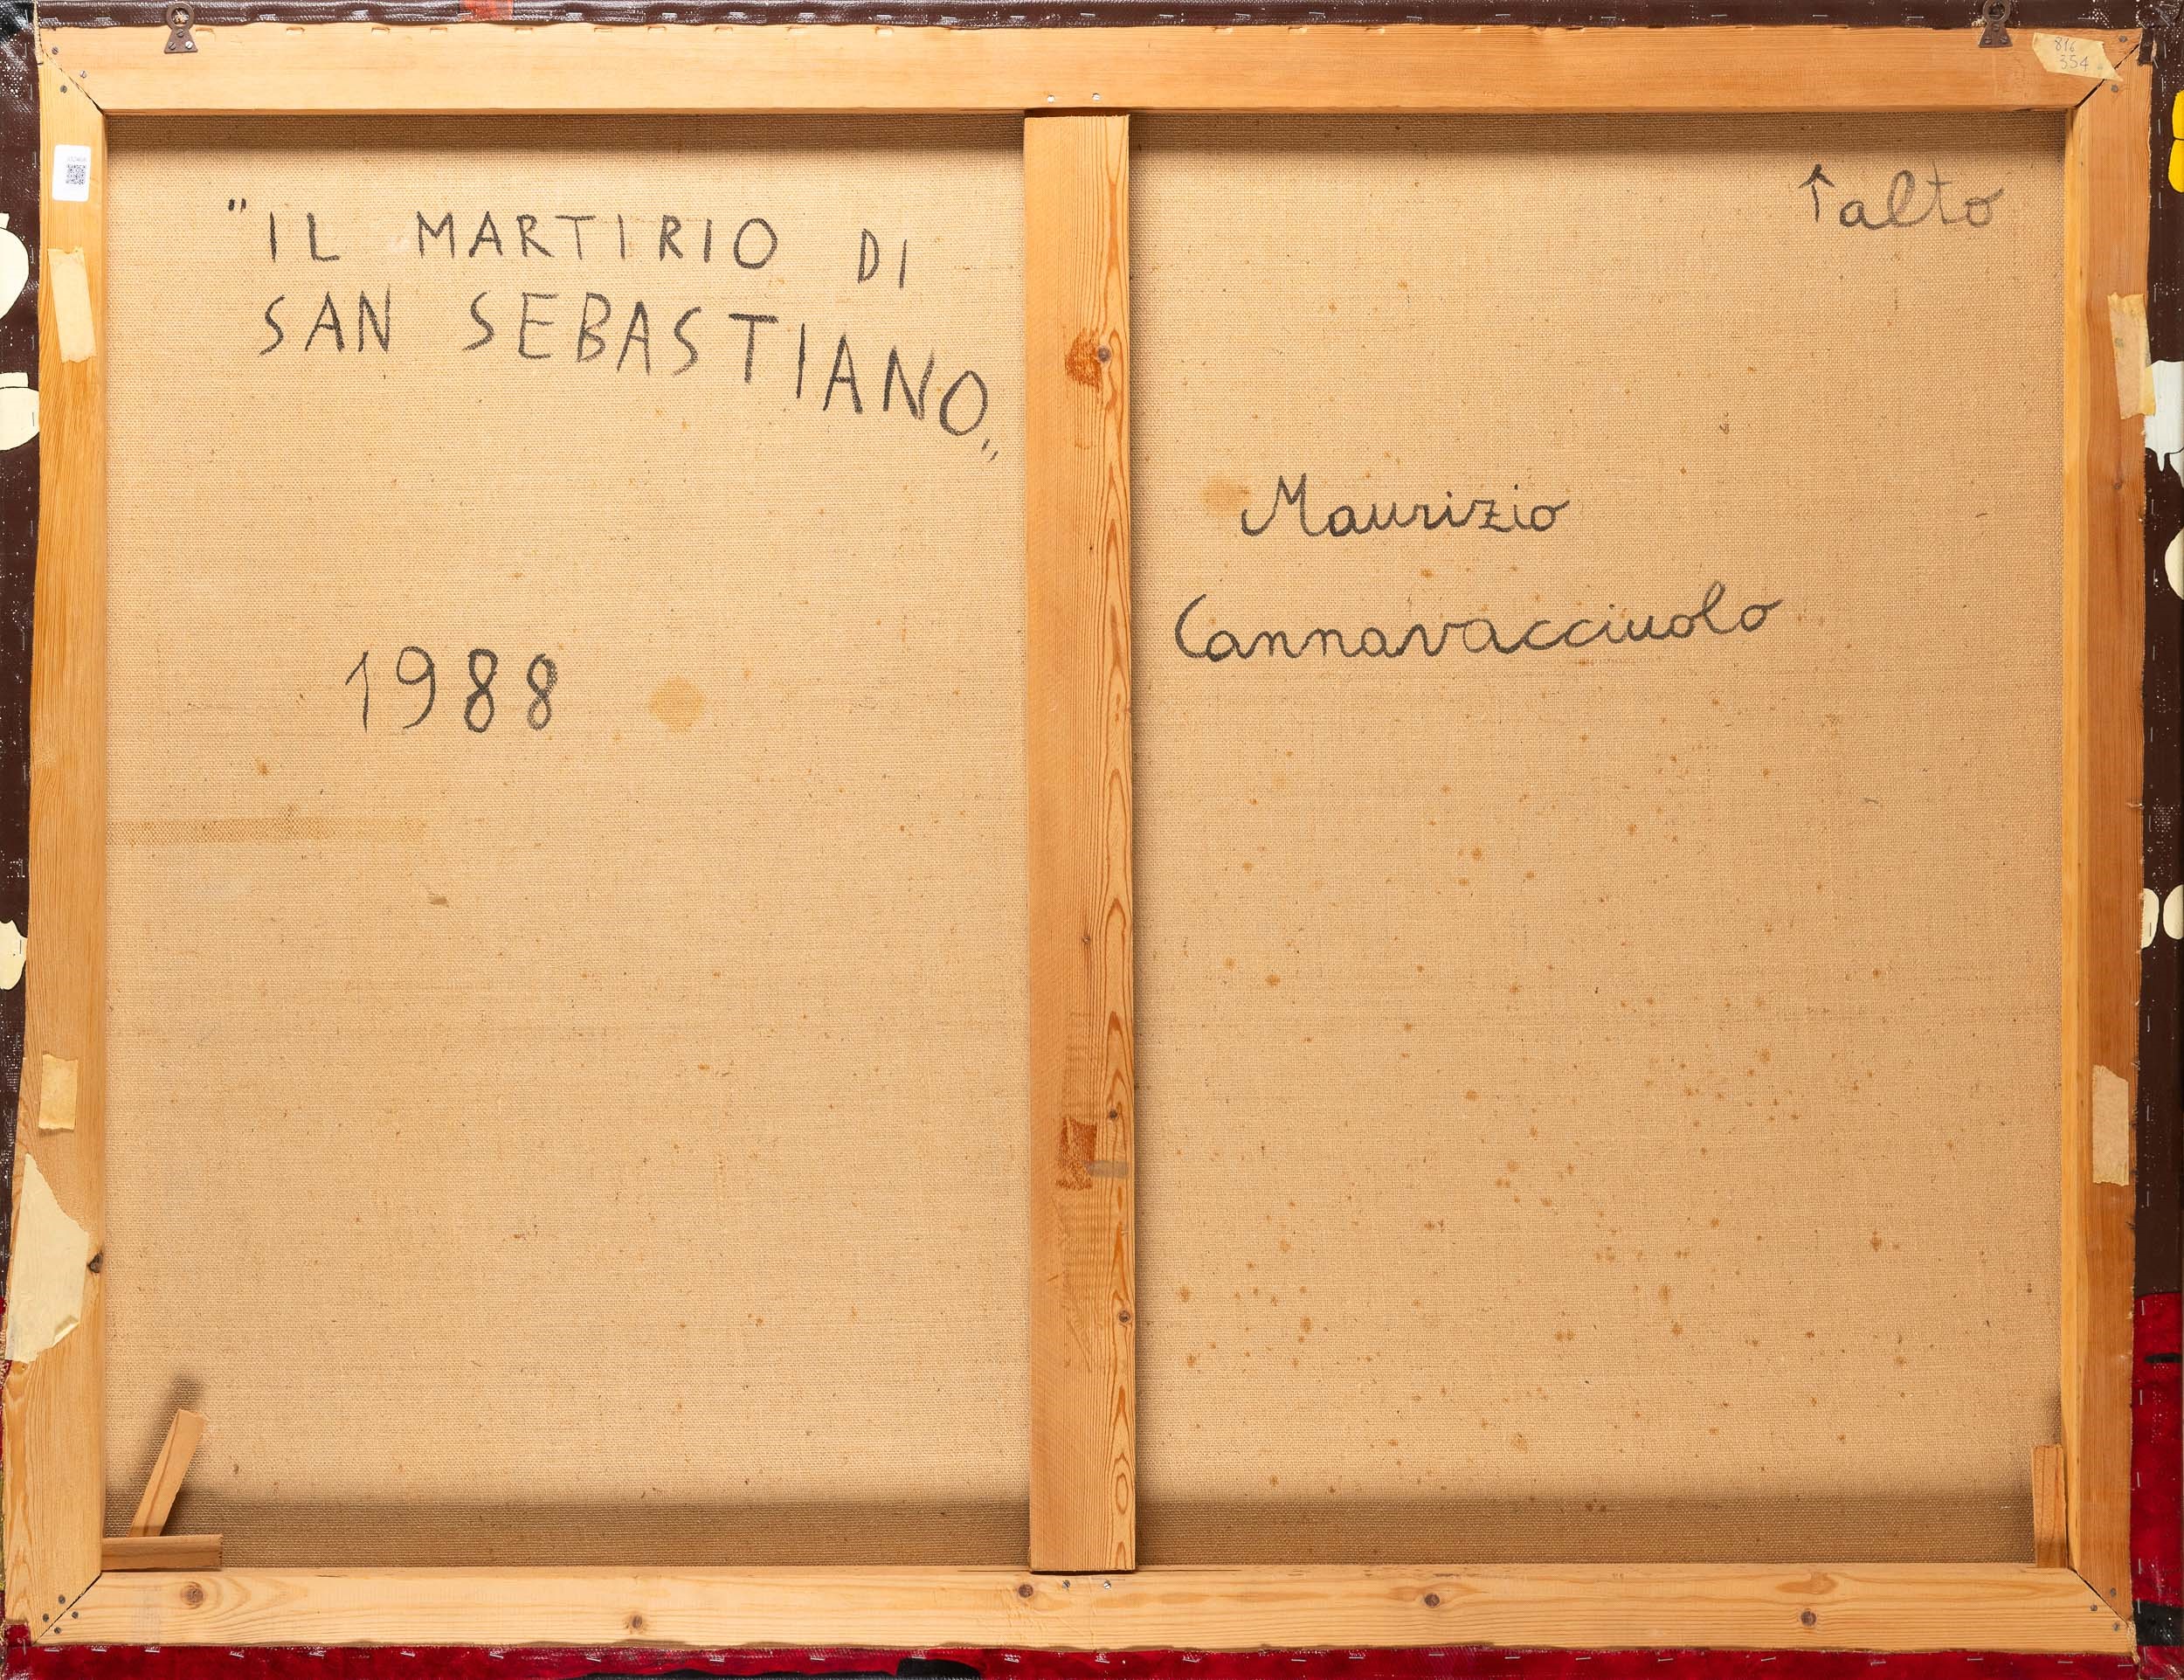 "IL MARTIRIO DI
SAN SEBASTIANO„
1988
↑alto
Maurizio
Cannavacciuolo
816
354